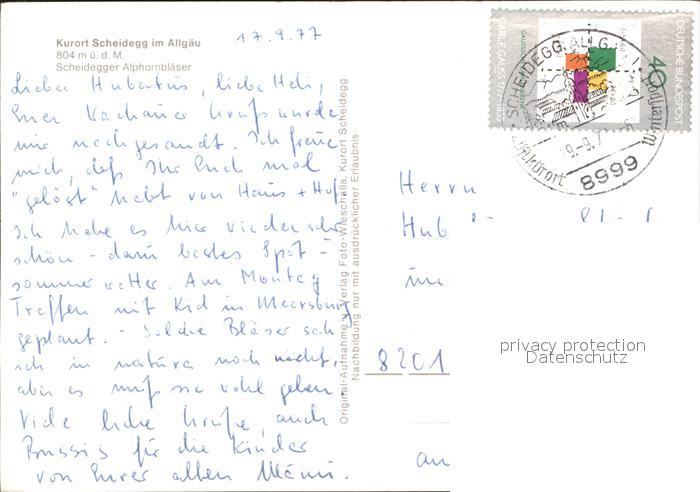 17.9.77
Kurort Scheidegg im Allgäu
804 m ü. d. M.
Scheidegger Alphornbläser
Lieber Hubertus, liebe Heli,
Euer Wachauer Gruß wurde
mir nachgesandt. Ich freue
mich, daß Ihr Euch mal
"gelöst" habt von Haus + Hof
Ich habe es hier wieder sehr
schön - dazu bestes Spät-
sommerwetter. Am Montag
Treffen mit Kid in Meersburg
geplant. - Solche Bläser sah
ich in natura noch nicht,
aber es muß sie wohl geben
Viele liebe Grüße, auch
Bussis für die Kinder
von Eurer alten
Original-Aufnahme u. Verlag Foto-Wieschalla, Kurort Scheidegg
Nachbildung nur mit ausdrücklicher Erlaubnis
DEUTSCHE BUNDESPOST
40
CARL F. GAUSS 1777-1855
SCHEIDEGG, ALLG.
19.-9.7
8999
Luftkurort
Herrn
Hub
8201
an
privacy protection
Datenschutz